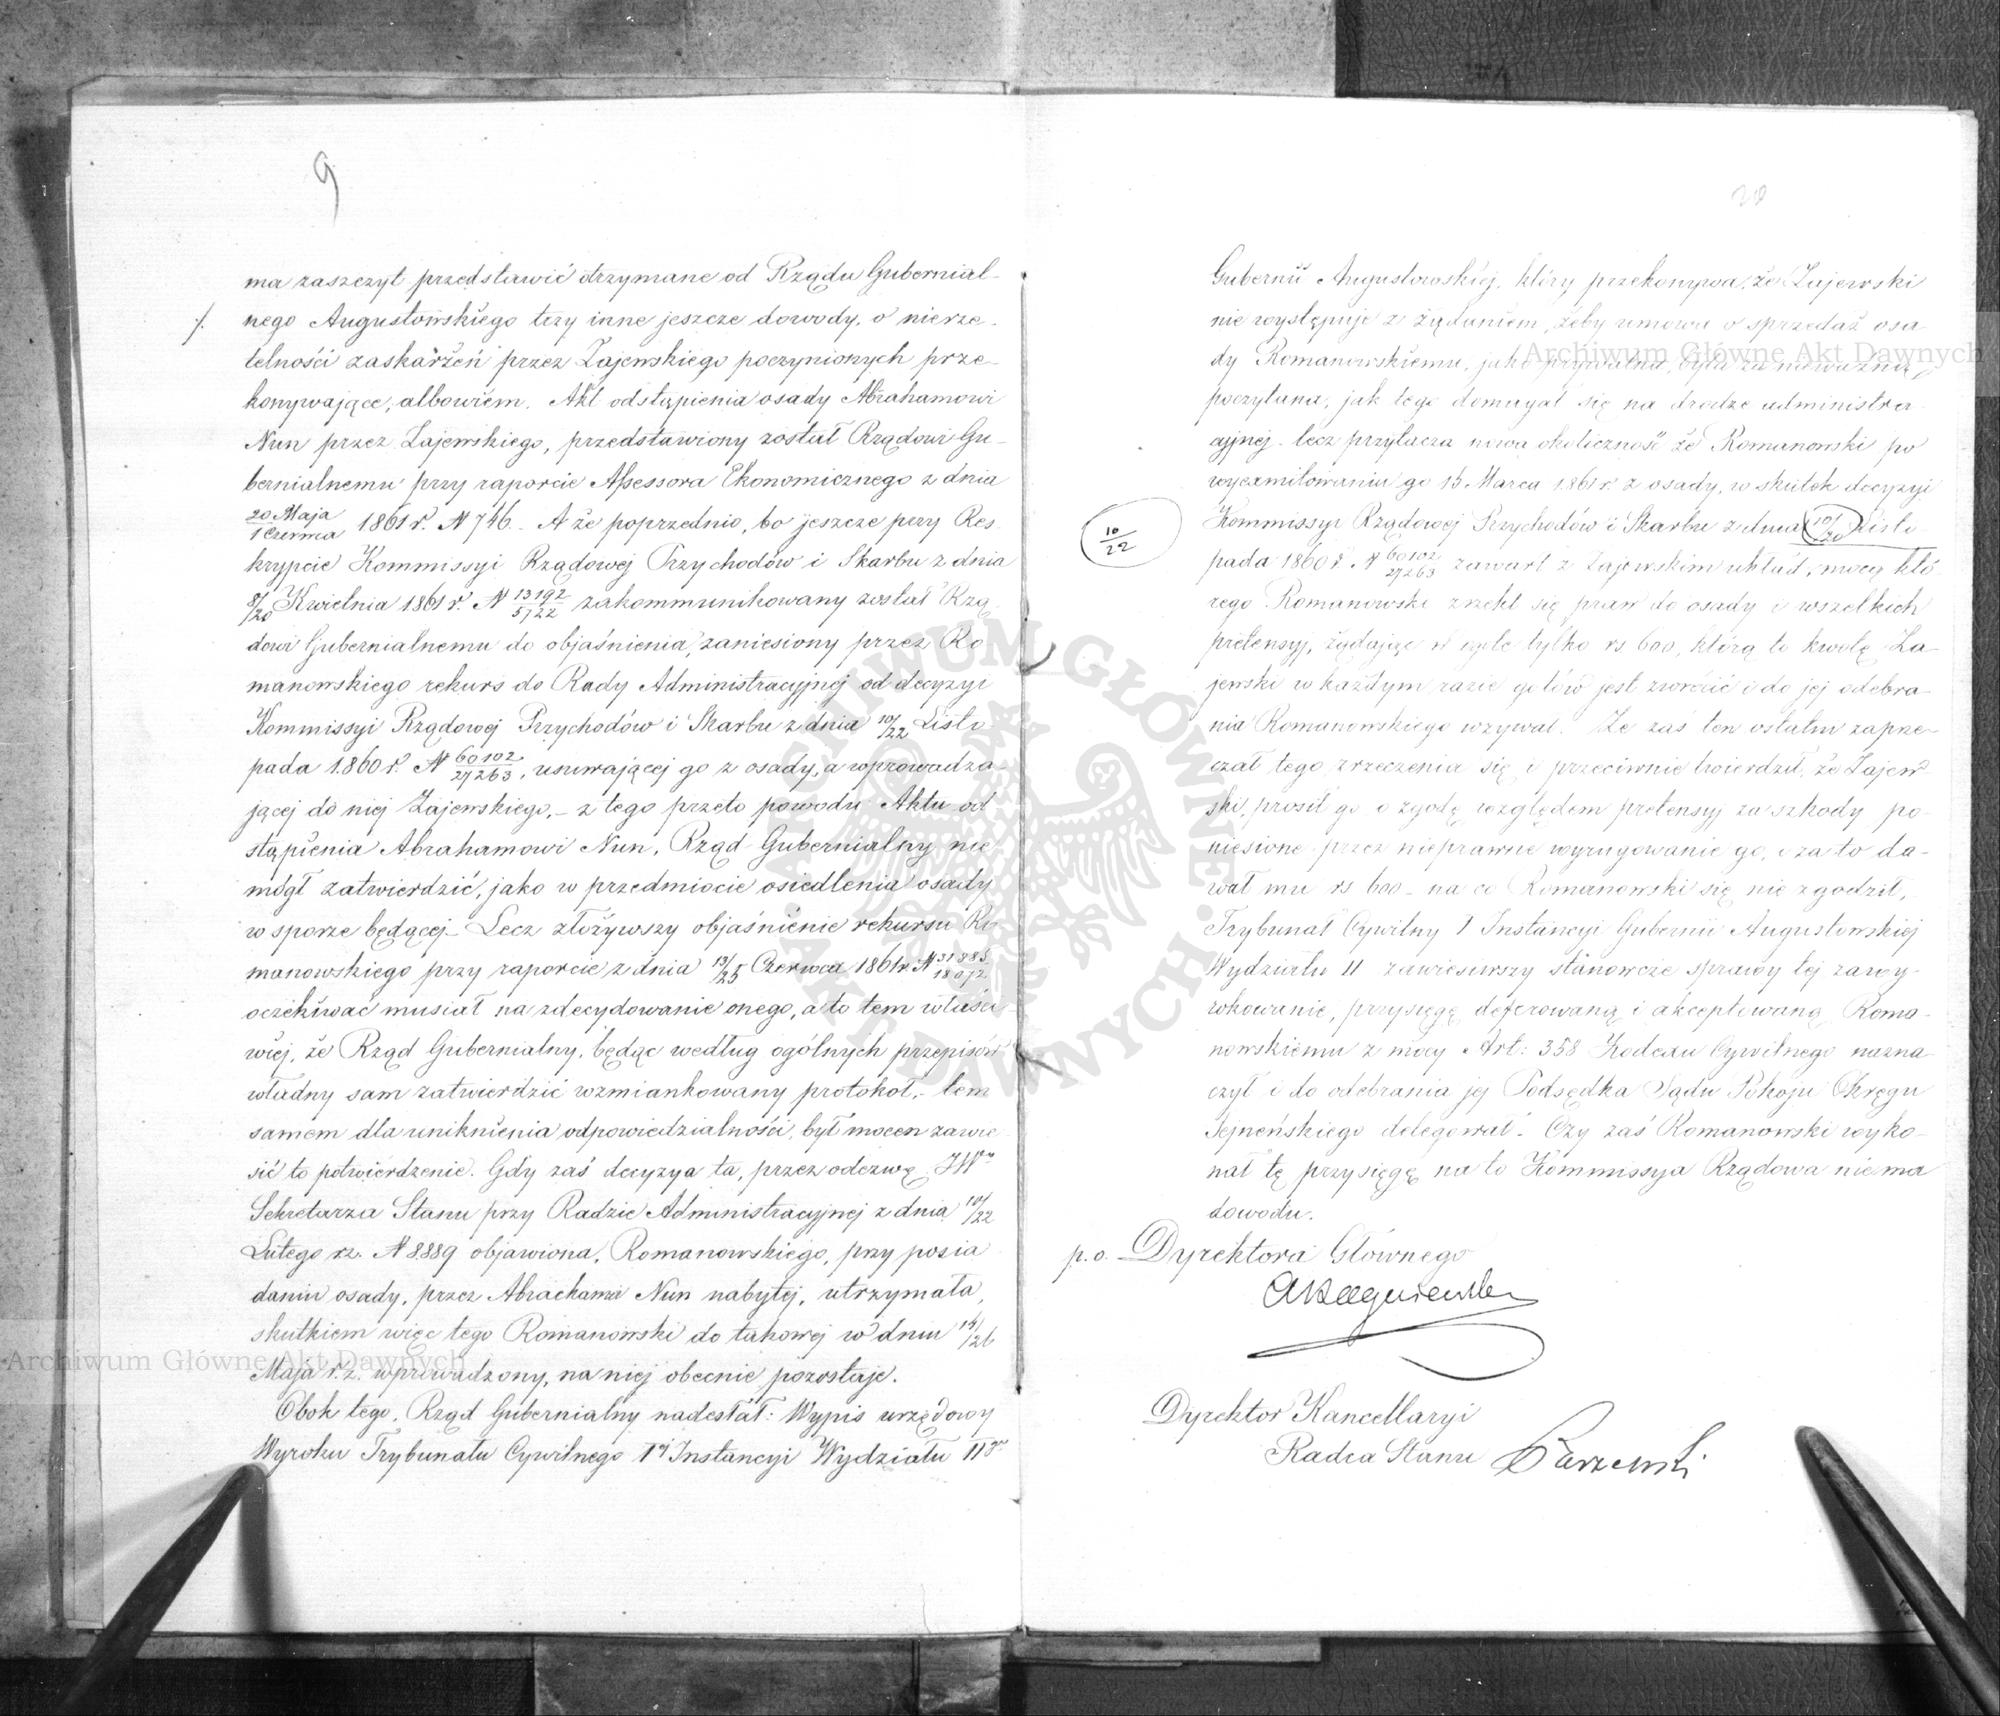 9
ma zaszczyt przedstawić otrzymane od Rządu Gubernial-
nego Augustowskiego trzy inne jeszcze dowody, o nierze-
telności zaskarżeń przez Zajewskiego poczynionych prze-
konywające, albowiem. Akt odstąpienia osady Abrahamowi
Nun przez Zajewskiego, przedstawiony został Rządowi Gu-
bernialnemu przy raporcie Assessora Ekonomicznego z dnia
20 Maja/1 Czerwca 1861 r. N 746. A że poprzednio, bo jeszcze przy Res-
krypcie Kommissyi Rządowej Przychodów i Skarbu z dnia
8/20 Kwietnia 1861 r. N 13192/5722 zakommunikowany został Rzą-
dowi Gubernialnemu do objaśnienia, zaniesiony przez Ro-
manowskiego rekurs do Rady Administracyjnej od decyzyi
Kommissyi Rządowej Przychodów i Skarbu z dnia 10/22 Listo-
pada 1860 r. N 60102/27263, usuwającej go z osady, a wprowadza-
jącej do niej Zajewskiego, – z tego przeto powodu Aktu od-
stąpienia Abrahamowi Nun, Rząd Gubernialny nie
mógł zatwierdzić, jako w przedmiocie osiedlenia osady
w sporze będącej – Lecz złożywszy objaśnienie rekursu Ro-
manowskiego przy raporcie z dnia 13/25 Czerwca 1861 r. N 31885/18072
oczekiwać musiał na zdecydowanie onego, a to tem właści-
wiej, że Rząd Gubernialny, będąc według ogólnych przepisów
władny sam zatwierdzić wzmiankowany protokół, – tem
samem dla uniknienia odpowiedzialności, był mocen zawie-
sić to potwierdzenie. Gdy zaś decyzya ta, przez odezwę JW°
Sekretarza Stanu przy Radzie Administracyjnej z dnia 10/22
Lutego r.z. N 8889 objawiona, Romanowskiego, przy posia-
daniu osady, przez Abrachama Nun nabytej, utrzymała,
skutkiem więc tego Romanowski do takowej w dniu 14/26
Maja r. z. wprowadzony, na niej obecnie pozostaje.
Obok tego, Rząd Gubernialny nadesłał: Wypis urzędowy
Wyroku Trybunału Cywilnego 1éj Instancyi Wydziału II°
Gubernii Augustowskiej, który przekonywa, że Zajewski
nie występuje z żądaniem, żeby umowa o sprzedaż osa-
dy Romanowskiemu, jako prywatna, była za nieważną
poczytana, jak tego domagał się na drodze administra-
cyjnej – lecz przytacza nową okoliczność że Romanowski po
wyexmitowaniu go 15 Marca 1861 r. z osady, w skutek decyzyi
10/22 Kommissyi Rządowej Przychodów i Skarbu z dnia 10/20 Listo-
pada 1860 r. N 60102/27263 zawarł z Zajewskim układ, mocą któ-
rego Romanowski zrzekł się praw do osady i wszelkich
pretensyj, żądając tylko rs 600, którą to kwotę Za-
jewski w każdym razie gotów jest zwrócić i do jej odebra-
nia Romanowskiego wzywał. Że zaś ten ostatni zaprze-
czał tego zrzeczenia się i przeciwnie twierdził, że Zajew-
ski, prosił go o zgodę względem pretensyj za szkody po-
niesione przez nieprawne wyrugowanie go, i za to da-
wał mu rs 600 – na co Romanowski się nie zgodził,
Trybunał Cywilny I Instancyi Gubernii Augustowskiej
Wydziału II zawiesiwszy stanowcze sprawy tej zawy-
rokowanie, przysięgę deferowaną i akceptowaną Roma-
nowskiemu z mocy Art: 358 Kodexu Cywilnego nazna-
czył i do odebrania jej Podsędka Sądu Pokoju Okręgu
Sejneńskiego delegował. – Czy zaś Romanowski wyko-
nał tę przysięgę na to Kommissya Rządowa nie ma
dowodu.
p. o. Dyrektora Głównego
Dyrektor Kancellaryi
Radca Stanu
Archiwum Główne Akt Dawnych
Archiwum Główne Akt Dawnych
ARCHIWUM GŁÓWNE AKT DAWNYCH